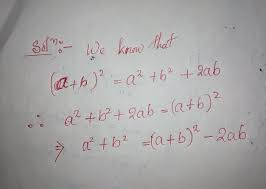 Solⁿ:- We know that
(a+b)² = a² + b² + 2ab
∴ a² + b² + 2ab = (a+b)²
⇒ a² + b² = (a+b)² - 2ab